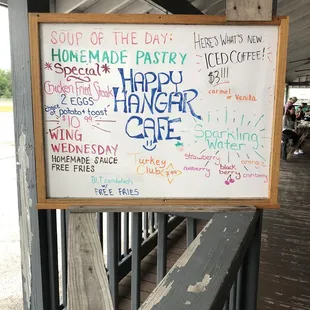 SOUP OF THE DAY:
HOMEMADE PASTRY
*Special*
Chicken Fried Steak
2 EGGS
potato + toast
$10.99
WING
WEDNESDAY
HOMEMADE SAUCE
FREE FRIES
HAPPY
HANGAR
CAFE
Turkey
Club
FREE FRIES
HERE'S WHAT'S NEW
ICED COFFEE!
$3!!!
carmel
Vanilla
Sparkling
Water
strawberry
raspberry
black
berry